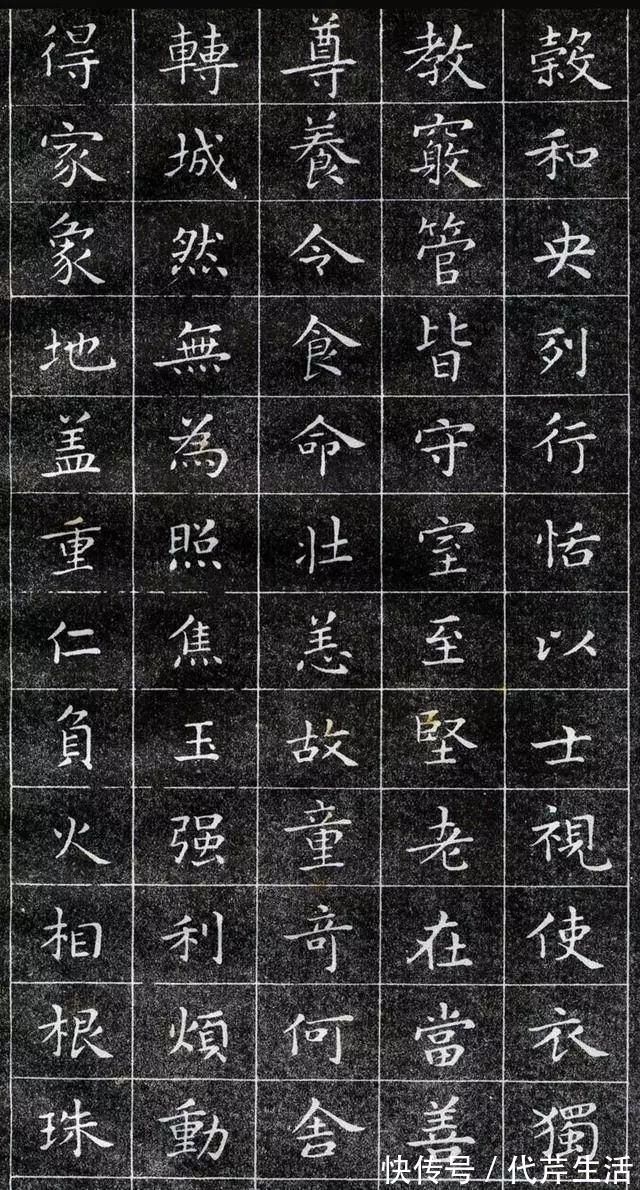 榖和央列行恬以士視使衣獨
教窮管皆守室至堅老在當善
尊養令食命壯恙故童竒何舍
轉城然無為照焦玉强利煩動
得家象地盖重仁負火相根珠
快传号/代芹生活